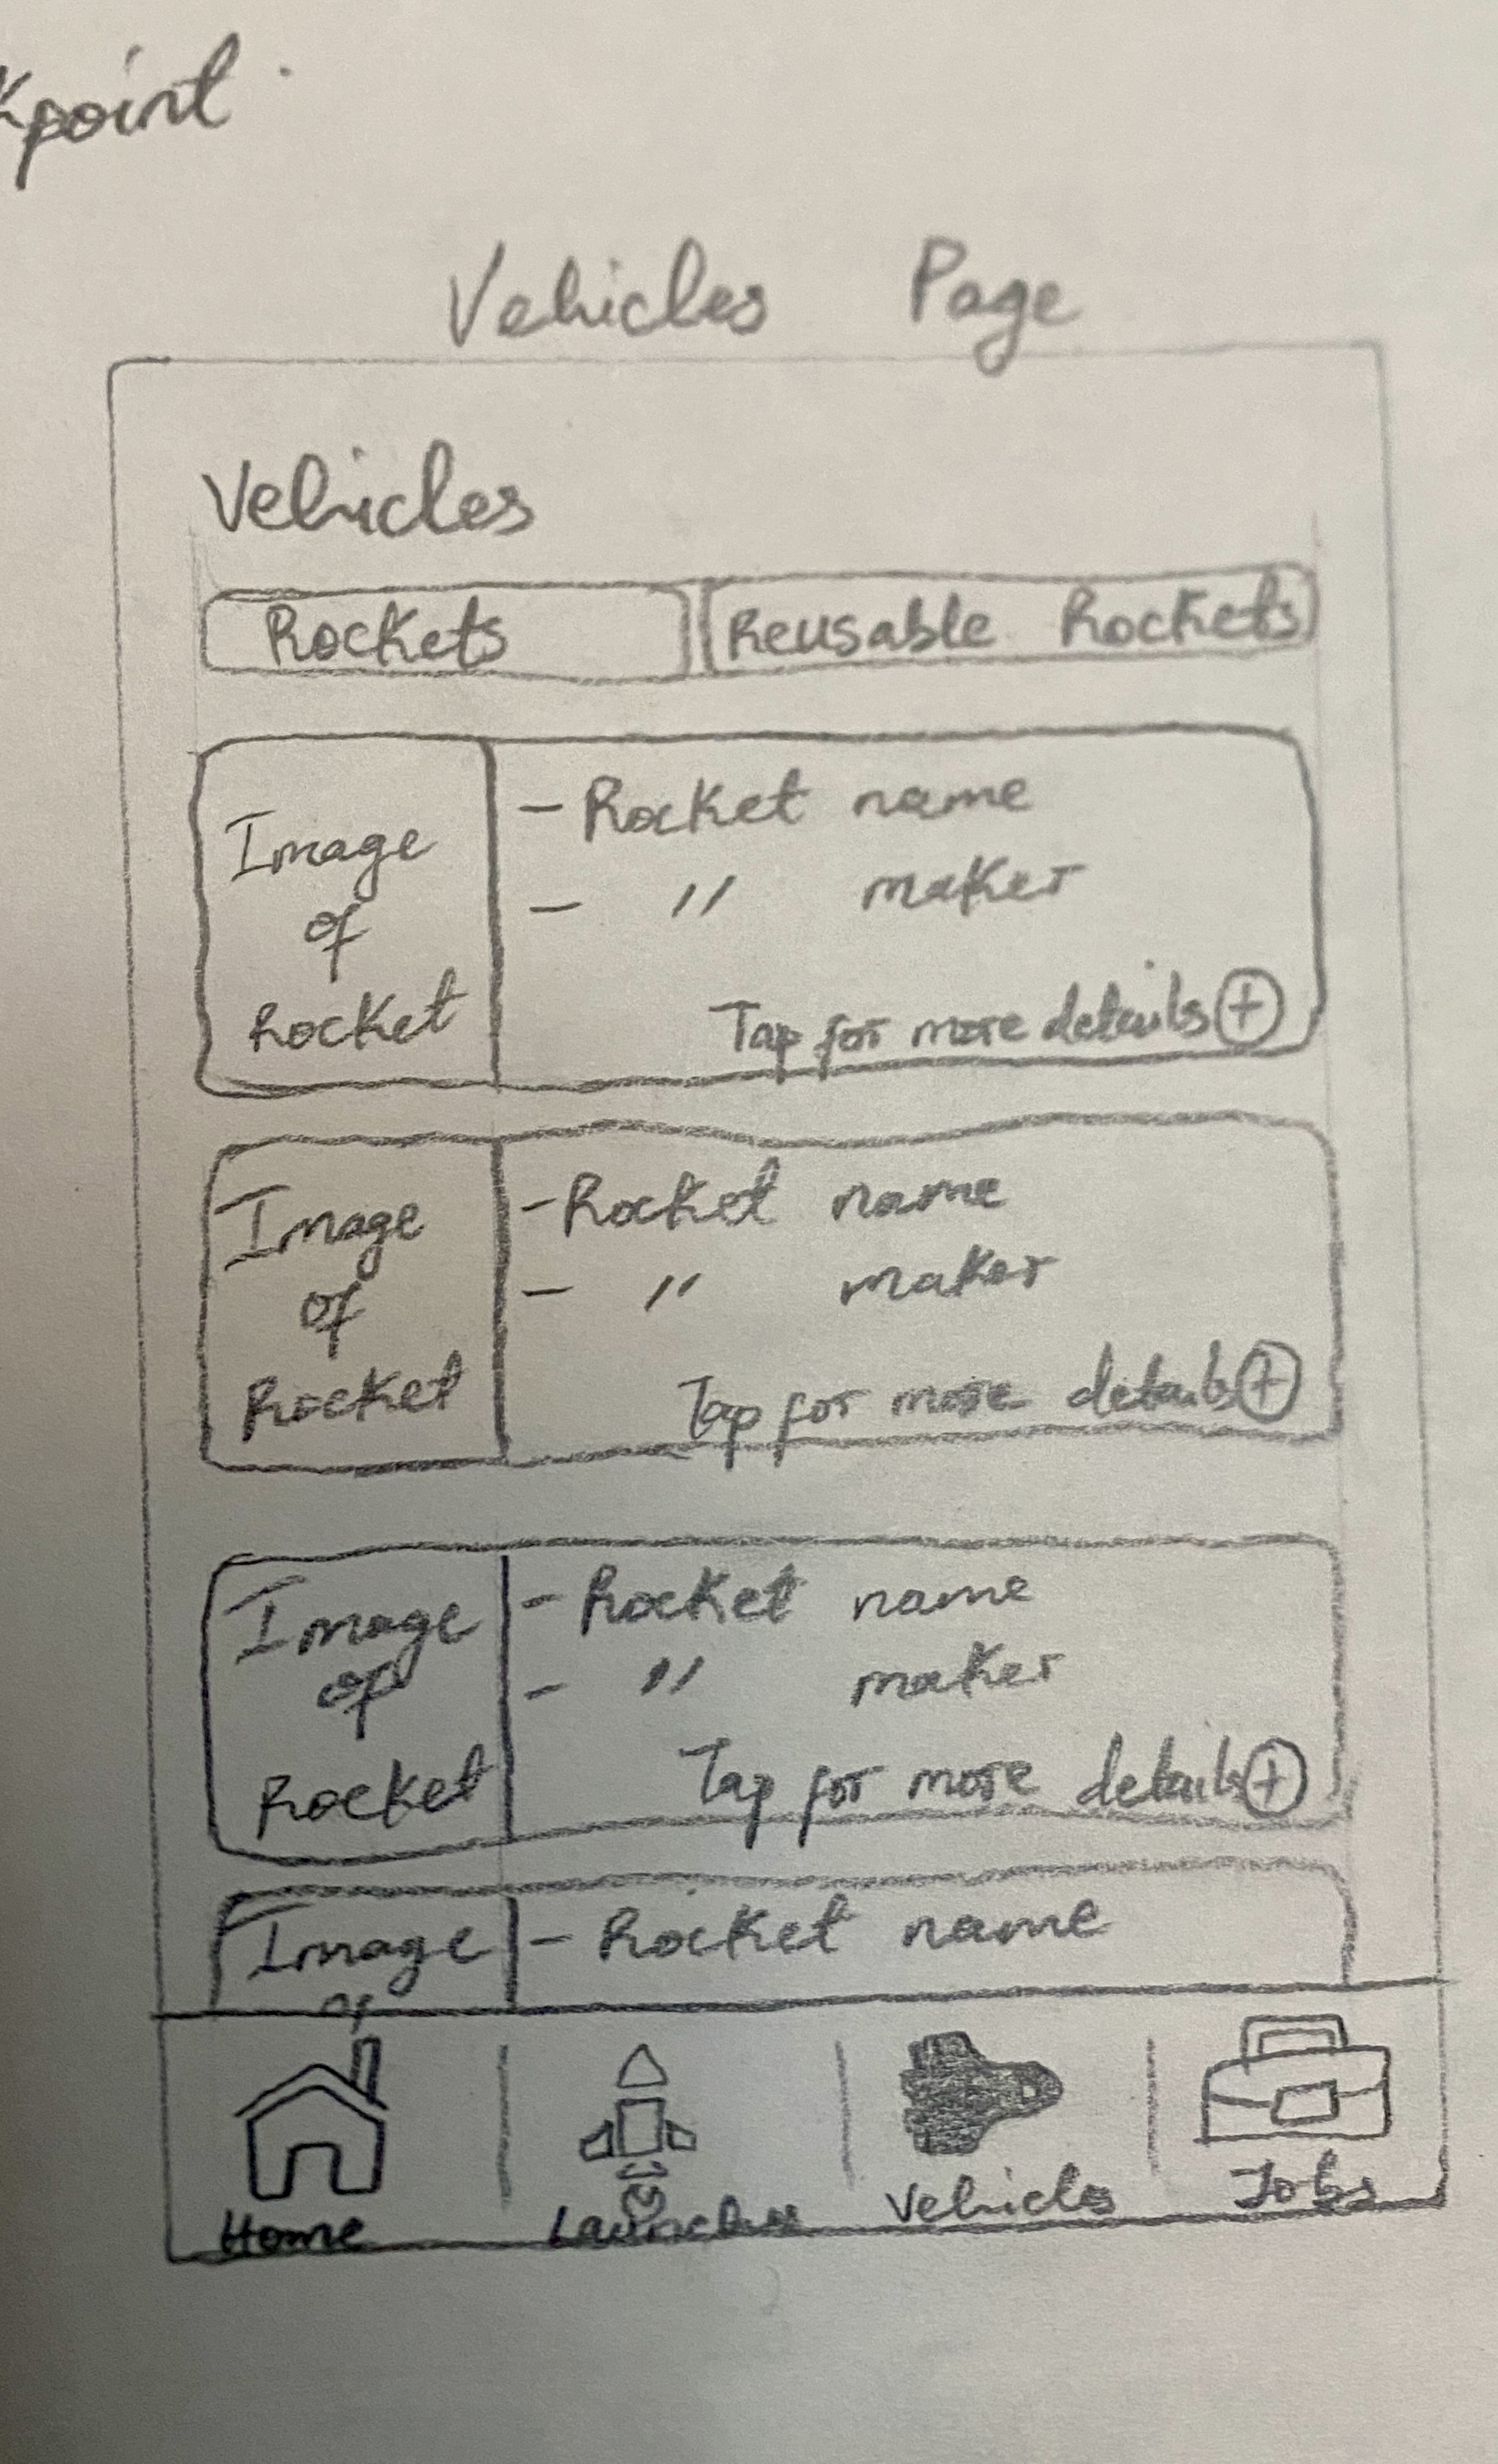 Kpoint
Vehicles Page
Vehicles
Rockets
Reusable Rockets
Image
of
Rocket
- Rocket name
- " maker
Tap for more details +
Image
of
Rocket
- Rocket name
- " maker
Tap for more details +
Image
of
Rocket
- Rocket name
- " maker
Tap for more details +
Image
of
- Rocket name
Home
Launches
Vehicles
Jobs